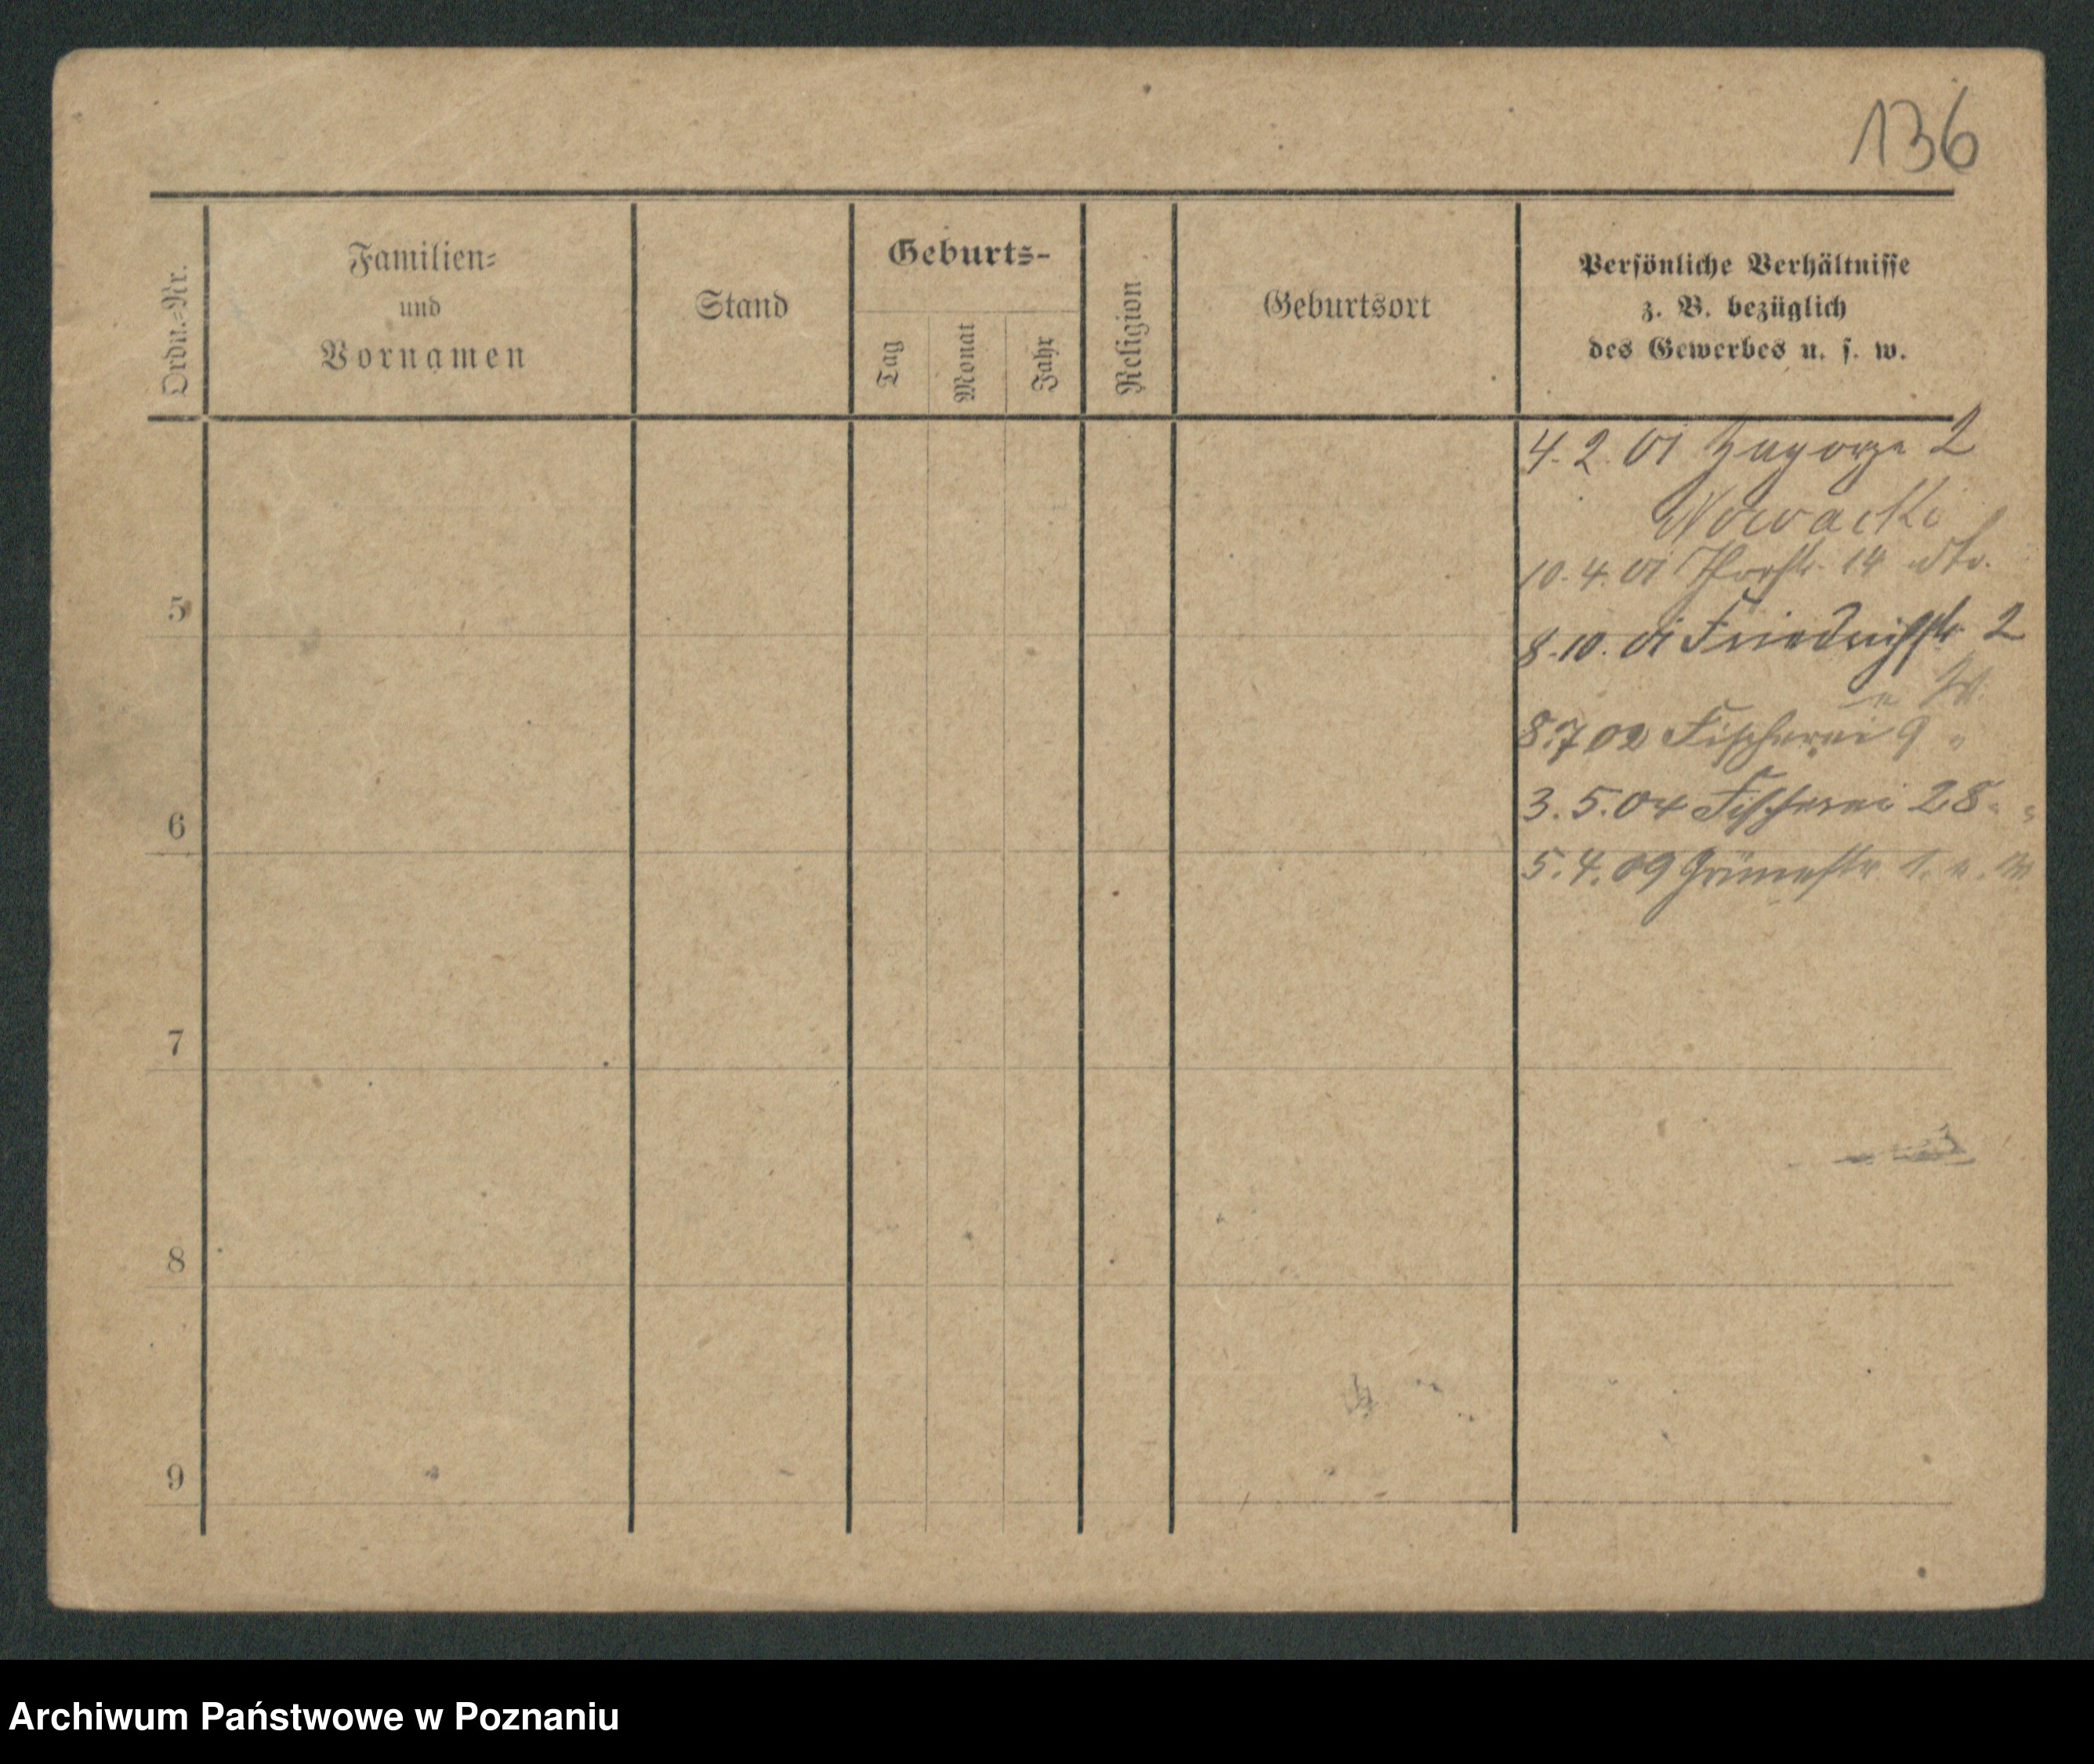 136
Ordn.-Nr.
Familien-
und
Vornamen
Stand
Geburts-
Tag
Monat
Jahr
Religion
Geburtsort
Persönliche Verhältnisse
z. B. bezüglich
des Gewerbes u. s. w.
4. 2. 01 Zagorze 2
Nowacki
10. 4. 01 14 dto.
5
8. 10. 01 Friedrichstr 2
8. 7 02 Fischerei 9 "
6
3. 5. 04 Fischerei 28 " "
5. 4. 09
7
8
9
Archiwum Państwowe w Poznaniu